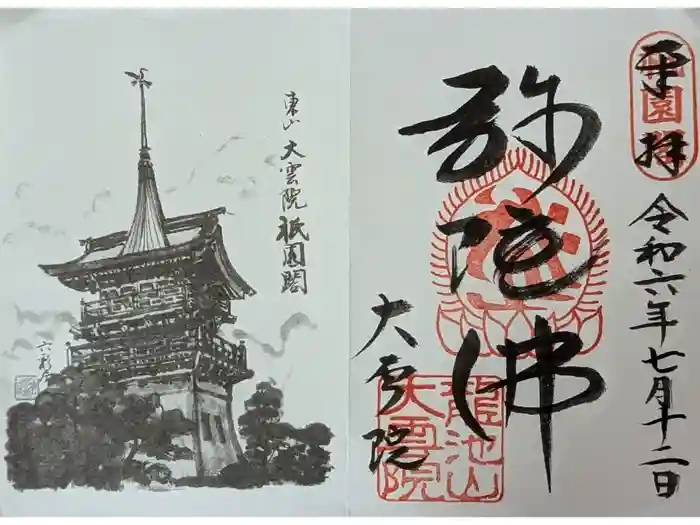 奉拝
祇園閣
令和六年七月十二日
弥陀佛
大雲院
龍池山
大雲院
東山 大雲院 祇園閣